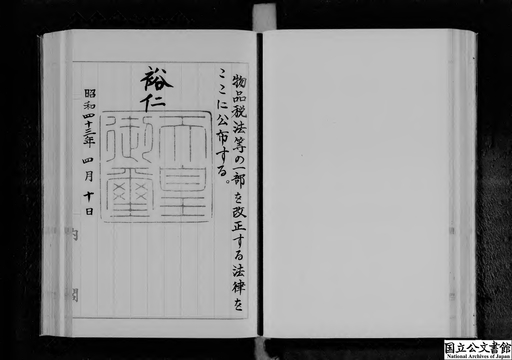 物品税法等の一部を改正する法律を
ここに公布する。
裕仁
天皇
御璽
昭和四十三年四月十日
内閣
国立公文書館
National Archives of Japan